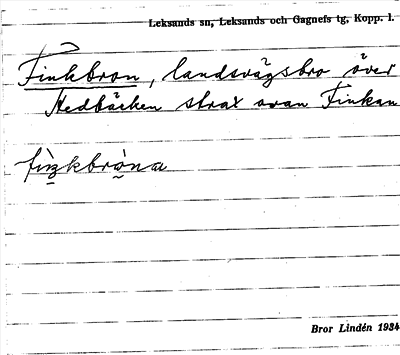 Leksands sn, Leksands och Gagnefs tg, Kopp. l.
Finkbron, landsvägsbro över
Hedbäcken strax ovan Finkan
Bror Lindén 1934